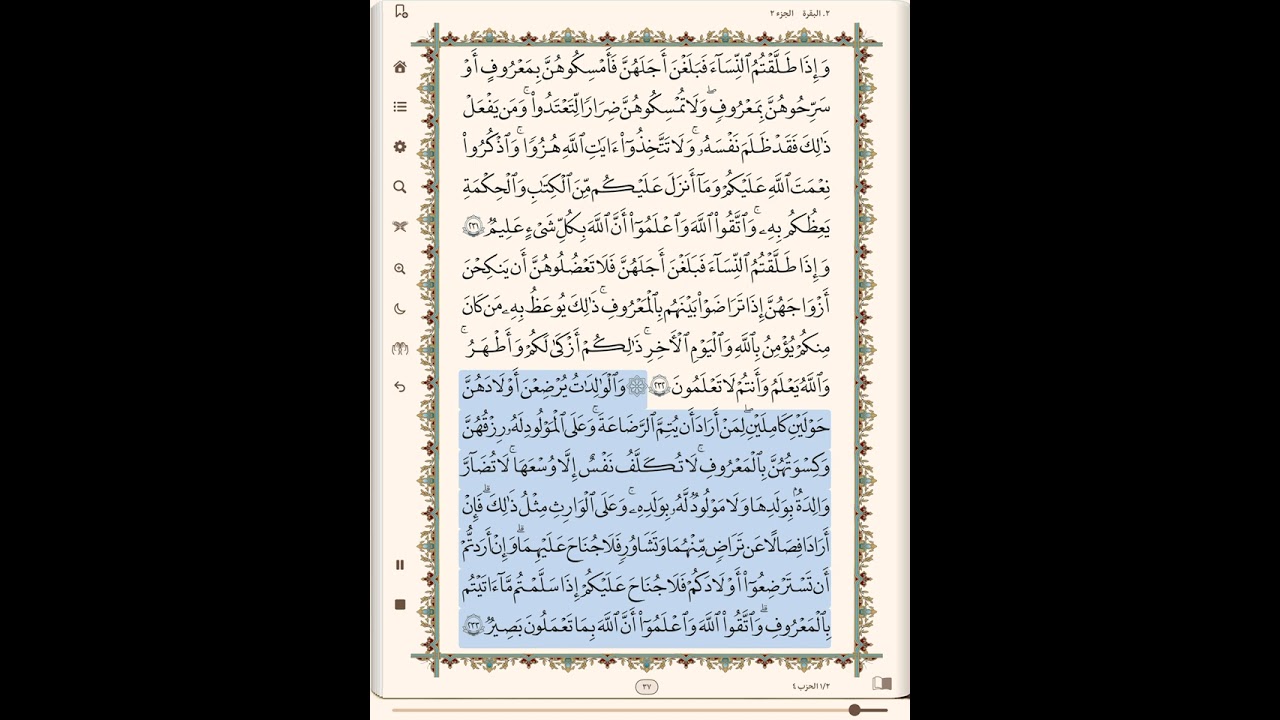 ٢. البقرة الجزء ٢
وَإِذَا طَلَّقْتُمُ ٱلنِّسَآءَ فَبَلَغْنَ أَجَلَهُنَّ فَأَمْسِكُوهُنَّ بِمَعْرُوفٍ أَوْ
سَرِّحُوهُنَّ بِمَعْرُوفٍۢ ۖ وَلَا تُمْسِكُوهُنَّ ضِرَارًا لِّتَعْتَدُوا۟ ۚ وَمَن يَفْعَلْ
ذَٰلِكَ فَقَدْ ظَلَمَ نَفْسَهُۥ ۚ وَلَا تَتَّخِذُوٓا۟ ءَايَٰتِ ٱللَّهِ هُزُوًۭا ۚ وَٱذْكُرُوا۟
نِعْمَتَ ٱللَّهِ عَلَيْكُمْ وَمَآ أَنزَلَ عَلَيْكُم مِّنَ ٱلْكِتَٰبِ وَٱلْحِكْمَةِ
يَعِظُكُم بِهِۦ ۚ وَٱتَّقُوا۟ ٱللَّهَ وَٱعْلَمُوٓا۟ أَنَّ ٱللَّهَ بِكُلِّ شَىْءٍ عَلِيمٌۭ ٢٣١
وَإِذَا طَلَّقْتُمُ ٱلنِّسَآءَ فَبَلَغْنَ أَجَلَهُنَّ فَلَا تَعْضُلُوهُنَّ أَن يَنكِحْنَ
أَزْوَٰجَهُنَّ إِذَا تَرَٰضَوْا۟ بَيْنَهُم بِٱلْمَعْرُوفِ ۗ ذَٰلِكَ يُوعَظُ بِهِۦ مَن كَانَ
مِنكُمْ يُؤْمِنُ بِٱللَّهِ وَٱلْيَوْمِ ٱلْءَاخِرِ ۗ ذَٰلِكُمْ أَزْكَىٰ لَكُمْ وَأَطْهَرُ ۗ
وَٱللَّهُ يَعْلَمُ وَأَنتُمْ لَا تَعْلَمُونَ ٢٣٢ ۞ وَٱلْوَٰلِدَٰتُ يُرْضِعْنَ أَوْلَٰدَهُنَّ
حَوْلَيْنِ كَامِلَيْنِ ۖ لِمَنْ أَرَادَ أَن يُتِمَّ ٱلرَّضَاعَةَ ۚ وَعَلَى ٱلْمَوْلُودِ لَهُۥ رِزْقُهُنَّ
وَكِسْوَتُهُنَّ بِٱلْمَعْرُوفِ ۚ لَا تُكَلَّفُ نَفْسٌ إِلَّا وُسْعَهَا ۚ لَا تُضَآرَّ
وَٰلِدَةٌۢ بِوَلَدِهَا وَلَا مَوْلُودٌۭ لَّهُۥ بِوَلَدِهِۦ ۚ وَعَلَى ٱلْوَارِثِ مِثْلُ ذَٰلِكَ ۗ فَإِنْ
أَرَادَا فِصَالًا عَن تَرَاضٍۢ مِّنْهُمَا وَتَشَاوُرٍۢ فَلَا جُنَاحَ عَلَيْهِمَا ۗ وَإِنْ أَرَدتُّمْ
أَن تَسْتَرْضِعُوٓا۟ أَوْلَٰدَكُمْ فَلَا جُنَاحَ عَلَيْكُمْ إِذَا سَلَّمْتُم مَّآ ءَاتَيْتُم
بِٱلْمَعْرُوفِ ۗ وَٱتَّقُوا۟ ٱللَّهَ وَٱعْلَمُوٓا۟ أَنَّ ٱللَّهَ بِمَا تَعْمَلُونَ بَصِيرٌۭ ٢٣٣
١/٢ الحزب ٤
٣٧